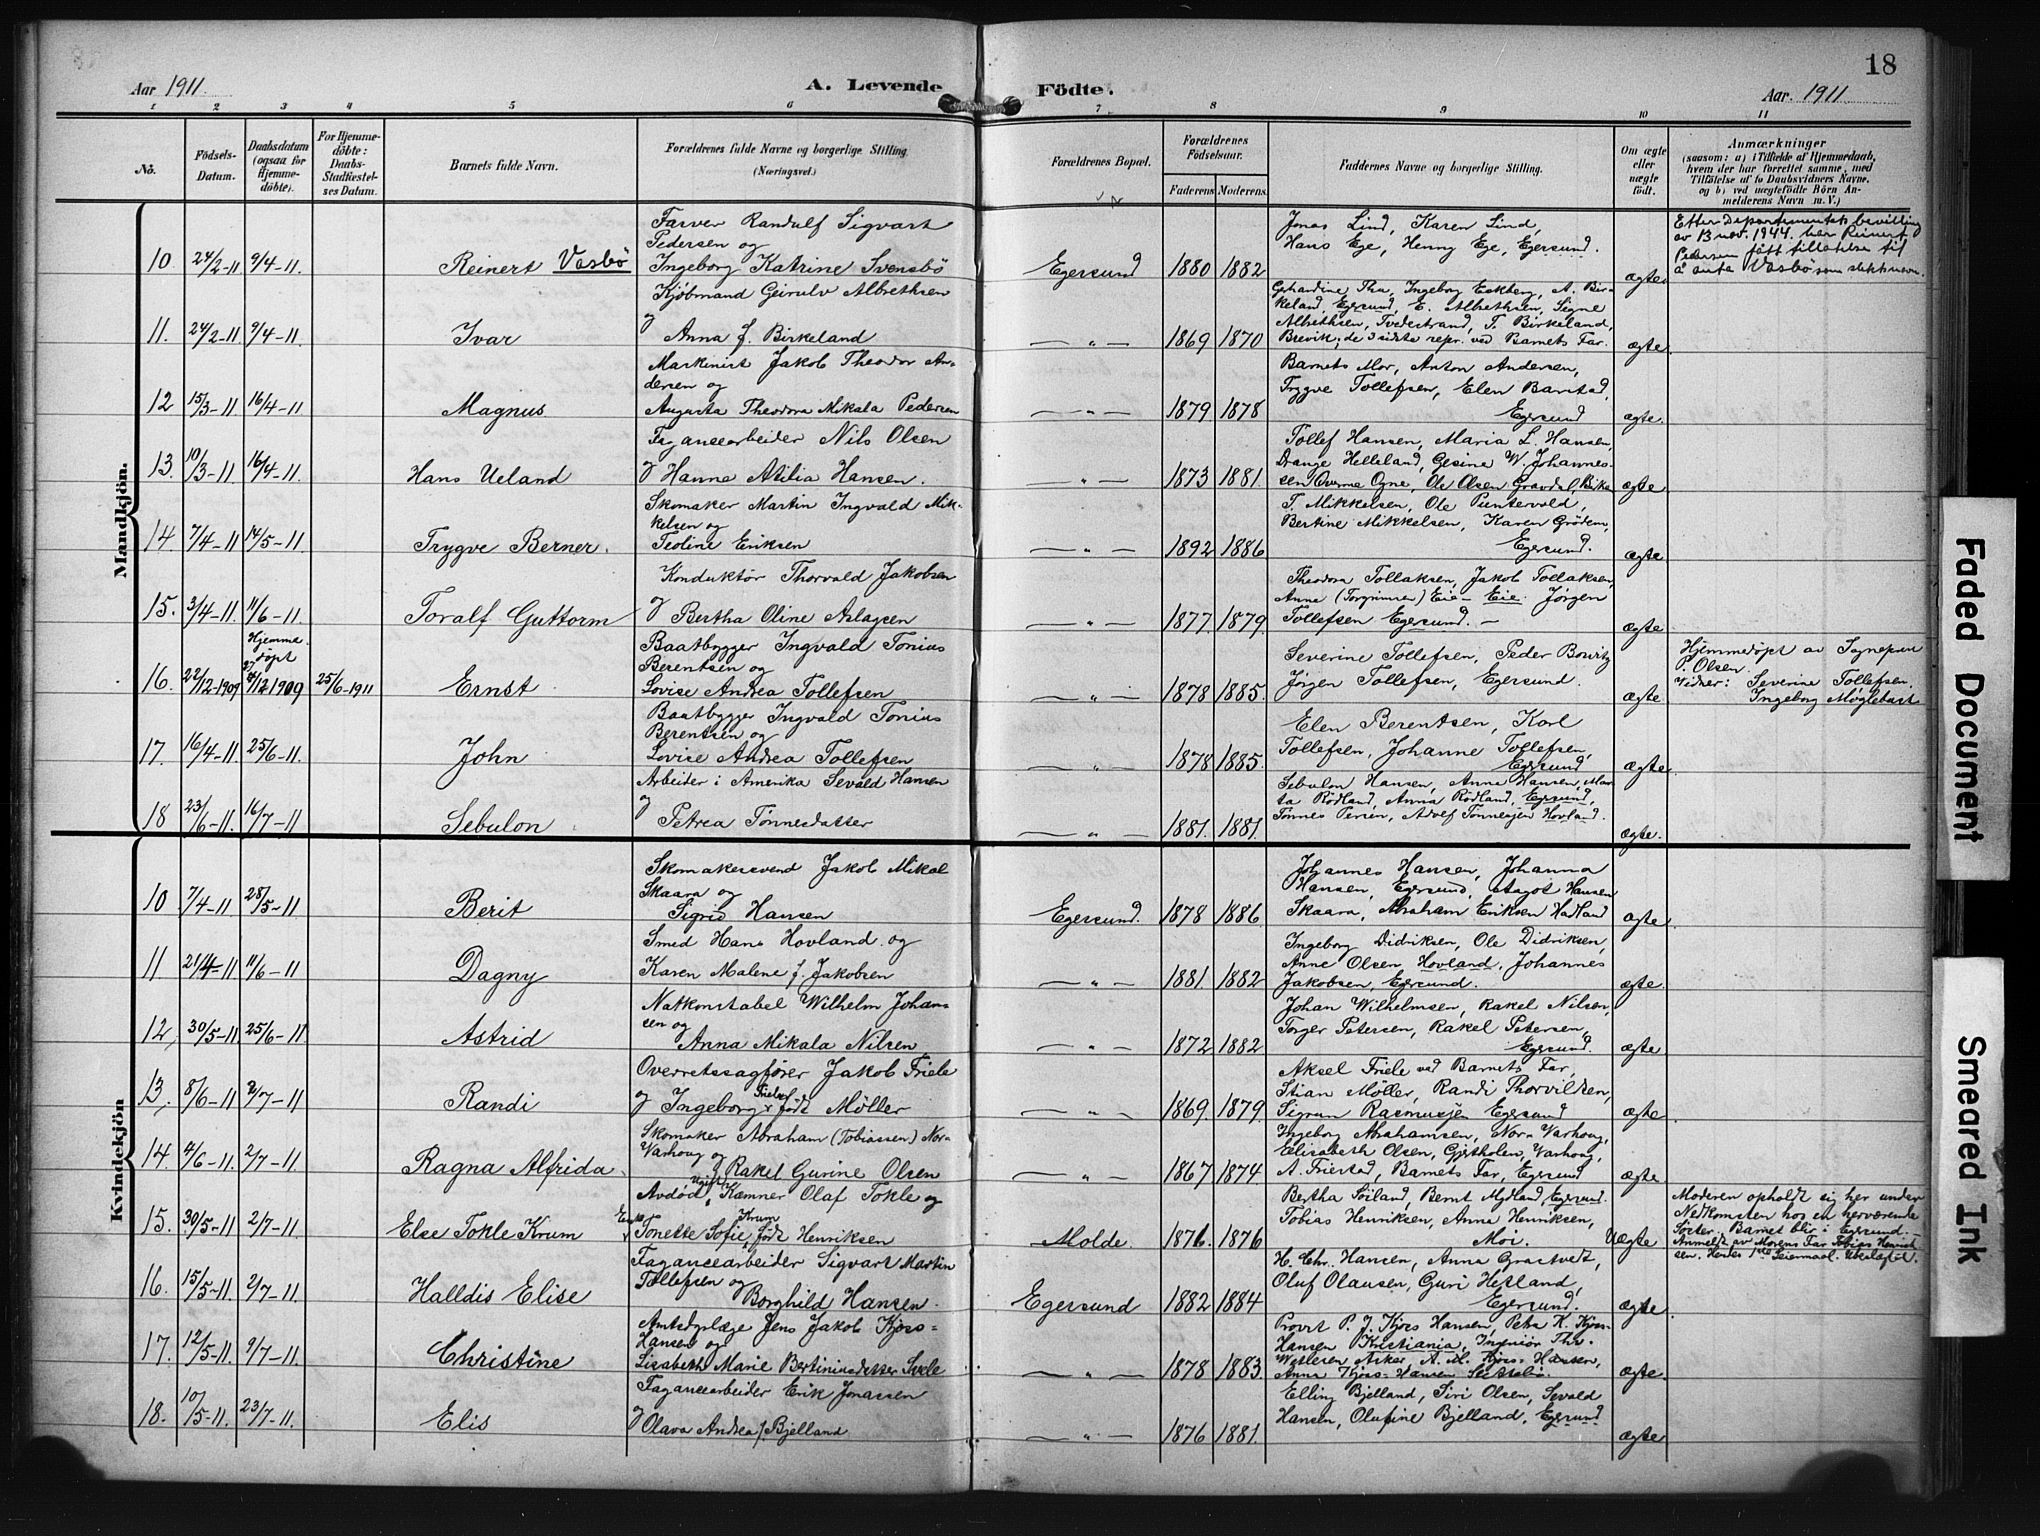 18
Aar 1911. A. Levende Födte. Aar. 1911
1 2 3 4 5 6 7 8 9 10 11
No.
Födsels-
Datum.
Daabsdatum
(ogsaa for
Hjemme-
döbte).
For Hjemme-
döbte:
Daabs-
Stadfæstel-
ses Datum.
Barnets fulde Navn.
Forældrenes fulde Navne og borgerlige Stilling
(Næringsvei.)
Forældrenes Bopæl.
Forældrenes
Födselsaar.
Faderens. Moderens.
Faddernes Navne og borgerlige Stilling.
Om ægte
eller
uægte
födt.
Anmærkninger
(saasom: a) i Tilfælde af Hjemmedaab,
hvem der har forrettet samme, med
Tilföielse af to Daabsvidners Navne,
og b) ved uægtefödte Börn An-
melderens Navn m. V.)
Mandkjön.
10 24/2-11 9/4-11. Reinert Vasbö
Farver Randulf Sigvart
Pedersen og
Ingeborg Katrine Svensbö
Egersund 1880 1882
Jonas Lind, Karen Lind,
Hans Ege, Henny Ege, Egersund.
ægte
Etter Departementets bevilling
av 13 nov. 1944 har Reinert
Pedersen fått tillatelse til
å anta Vasbö som slektsnavn.
11. 24/2-11 9/4-11. Ivar
Kjöbmand Geirulv Albrethsen
og Anna f. Birkeland
— " — 1869 1870
Gerhardine Thu, Ingeborg Eckberg, A. Bir-
keland, Egersund, E. Albrethsen, Signe
Albrethsen, Tvedestrand, T. Birkeland,
Brevik; de 3 sidste repr. ved Barnets Far.
ægte
12 15/3-11 16/4-11 Magnus
Maskinist Jakob Theodor An-
dersen og
Augusta Theodora Mikala Pedersen
— " — 1879 1878
Barnets Mor, Anton Andersen,
Trygve Tollefsen, Elen Barstad,
Egersund
ægte.
13. 10/3-11 16/4-11. Hans Ueland
Fayancearbeider Nils Olsen
og Hanna Atilia Hansen.
— " — 1873 1881.
Tollef Hansen, Maria L. Hansen,
Drange Helleland, Gesine W. Johannes-
sen Ogne, Ole Olsen Gravdal,
ægte
14. 7/4-11 14/5-11 Trygve Berner.
Skomaker Martin Ingvald Mik-
kelsen og
Teoline Eriksen
— " — 1892 1886
T. Mikkelsen, Ole Puntervold,
Bertine Mikkelsen, Karen Grödem,
Egersund.
ægte
15. 3/4-11. 11/6-11 Toralf Guttorm
Konduktör Thorvald Jakobsen
og Bertha Oline Aslagsen
— " — 1877 1879.
Theodora Tollaksen, Jakob Tollaksen,
Anne (Torginnse) Eie - Eie. Jörgen
Tollefsen Egersund. —
ægte
16. 22/12-1909 Hjemme-
döpt
27/12 1909 25/6-1911 Ernst.
Baatbygger Ingvald Tonius
Berentsen og
Lovise Andrea Tollefsen
— " — 1878 1885.
Severine Tollefsen, Peder Bowitz
Jörgen Tollefsen, Egersund.
ægte
Hjemmedöpt av Sogneprest
P. Olsen.
Vidner: Severine Tollefsen.
Ingeborg Möglebust
17. 16/4-11. 25/6-11. John
Baatbygger Ingvald Tonius
Berentsen og
Lovise Andrea Tollefsen
— " — 1878 1885.
Elen Berentsen, Karl
Tollefsen, Johanne Tollefsen,
Egersund
ægte
18 23/6-11. 16/7-11 Sebulon
Arbeider i Amerika Sevald Hansen
og Petrea Tönnesdatter
— " — 1881. 1881.
Sebulon Hansen, Anna Hansen, Mar-
ta Rödland, Anna Rödland, Egersund,
Tönnes Persen, Adolf Tönnesen Hovland.
ægte.
Kvindekjön
10 7/4-11 28/5-11 Berit
Skomakersvend Jakob Mikal
Skaara og
Sigrid Hansen
Egersund. 1878 1886
Johannes Hansen, Johanna
Hansen, Egersund, Aagot Hansen
Skaara, Abraham Eriksen Hadland
ægte
11 21/4-11 11/6-11 Dagny
Smed Hans Hovland og
Karen Malene f. Jakobsen
— " — 1881. 1882
Ingeborg Didriksen, Ole Didriksen,
Anne Olsen Hovland, Johannes
Jakobsen, Egersund.
ægte
12, 30/5-11 25/6-11 Astrid
Natkonstabel Wilhelm Johan-
sen og
Anna Mikala Nilsen
— " — 1872 1882
Johan Wilhelmsen, Rakel Nilsen,
Torger Petersen, Rakel Petersen,
Egersund.
ægte
13, 8/6-11 2/7-11 Randi
Overretssagförer Jakob Friele
og Ingeborg Friele födt Möller
— " — 1869. 1879.
Aksel Friele ved Barnets Far,
Stian Möller, Randi Thorvildsen,
Sigrun Rasmussen Egersund
ægte
14. 4/6-11. 2/7-11. Ragna Alfrida
Skomaker Abraham (Tobiassen) Nor-
Varhoug og
Rakel Gurine Olsen
— " — 1867 1874
Ingeborg Abrahamsen, Nor-Varhoug,
Elisabeth Olsen, Gjetholen, Varhoug,
A. Friestad, Barnets Far, Egersund
ægte
15. 30/5-11 2/7-11. Else Tokle Krum
Avdöd Ugift Kæmner Olaf Tokle og
Enke Tonette Sofie Krum födt Henriksen
Molde 1871. 1876
Bertha Söiland, Bernt Mydland, Egersund.
Tobias Henriksen, Anna Henriksen,
Moi.
Uægte
Moderen opholdt sig her under
Nedkomsten hos en herværende
Söster. Barnet blir i Egersund.
Anmeldt av Morens Far Tobias Henrik-
sen. Hendes 1ste Leiermaal.
16. 15/5-11. 2/7-11. Halldis Elise
Fayancearbeider Sigvart Martin
Tollefsen og
Borghild Hansen.
Egersund 1882 1884
H. Chr. Hansen, Anna Gractvedt,
Oluf Olaussen, Guri Hetland,
Egersund.
ægte
17. 12/5-11. 9/7-11. Christine
Amtsdyrlæge Jens Jakob Kjos-
Hansen og
Lisabeth Marie Bertiniusdatter Svele
— " — 1878 1883.
Provst P. J. Kjos Hansen, Petra K. Kjos-
Hansen Kristiania, Ingeniör Th.
Wetlesen Asker, A. M. Kjos-Hansen,
Anna Kjos-Hansen
ægte
18. 10/5-11. 23/7-11. Elis
Fayancearbeider Erik Jonassen
og Olava Andrea f. Bjelland
— " — 1876 1881.
Elling Bjelland, Siri Olsen, Sevald
Hansen, Olufine Bjelland, Egersund
ægte
Faded Document
Smeared Ink